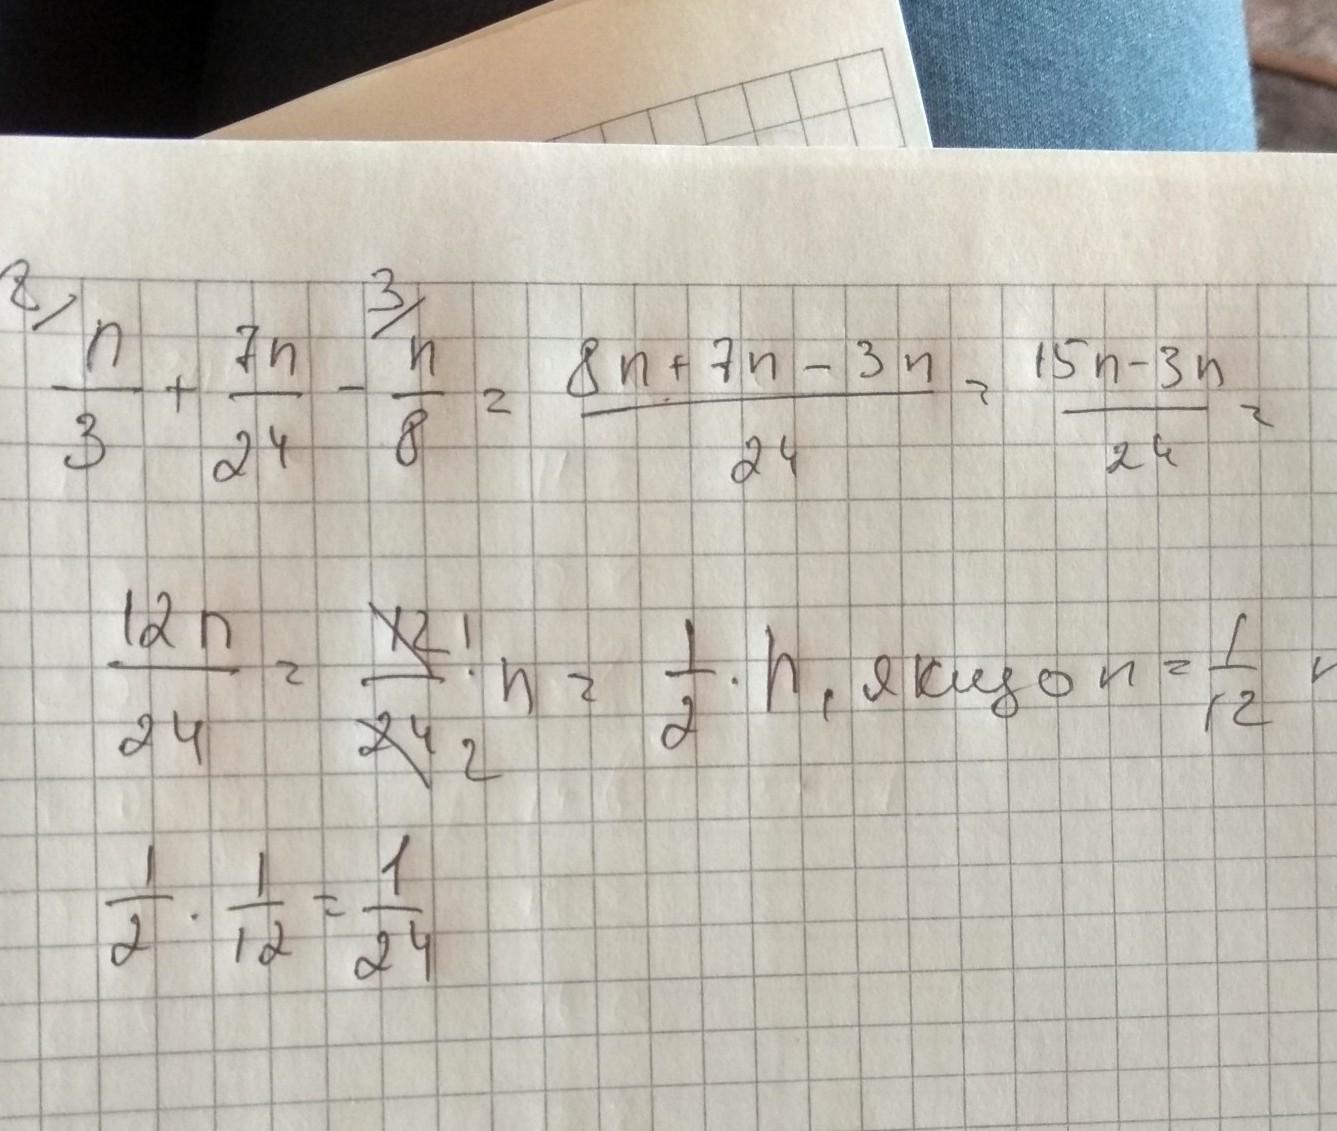 8/ n/3 + 7n/24 - 3/ n/8 = (8n+7n-3n)/24 = (15n-3n)/24 =
12n/24 = 12 1/24 2 · n = 1/2 · n, якщо n = 1/12
1/2 · 1/12 = 1/24